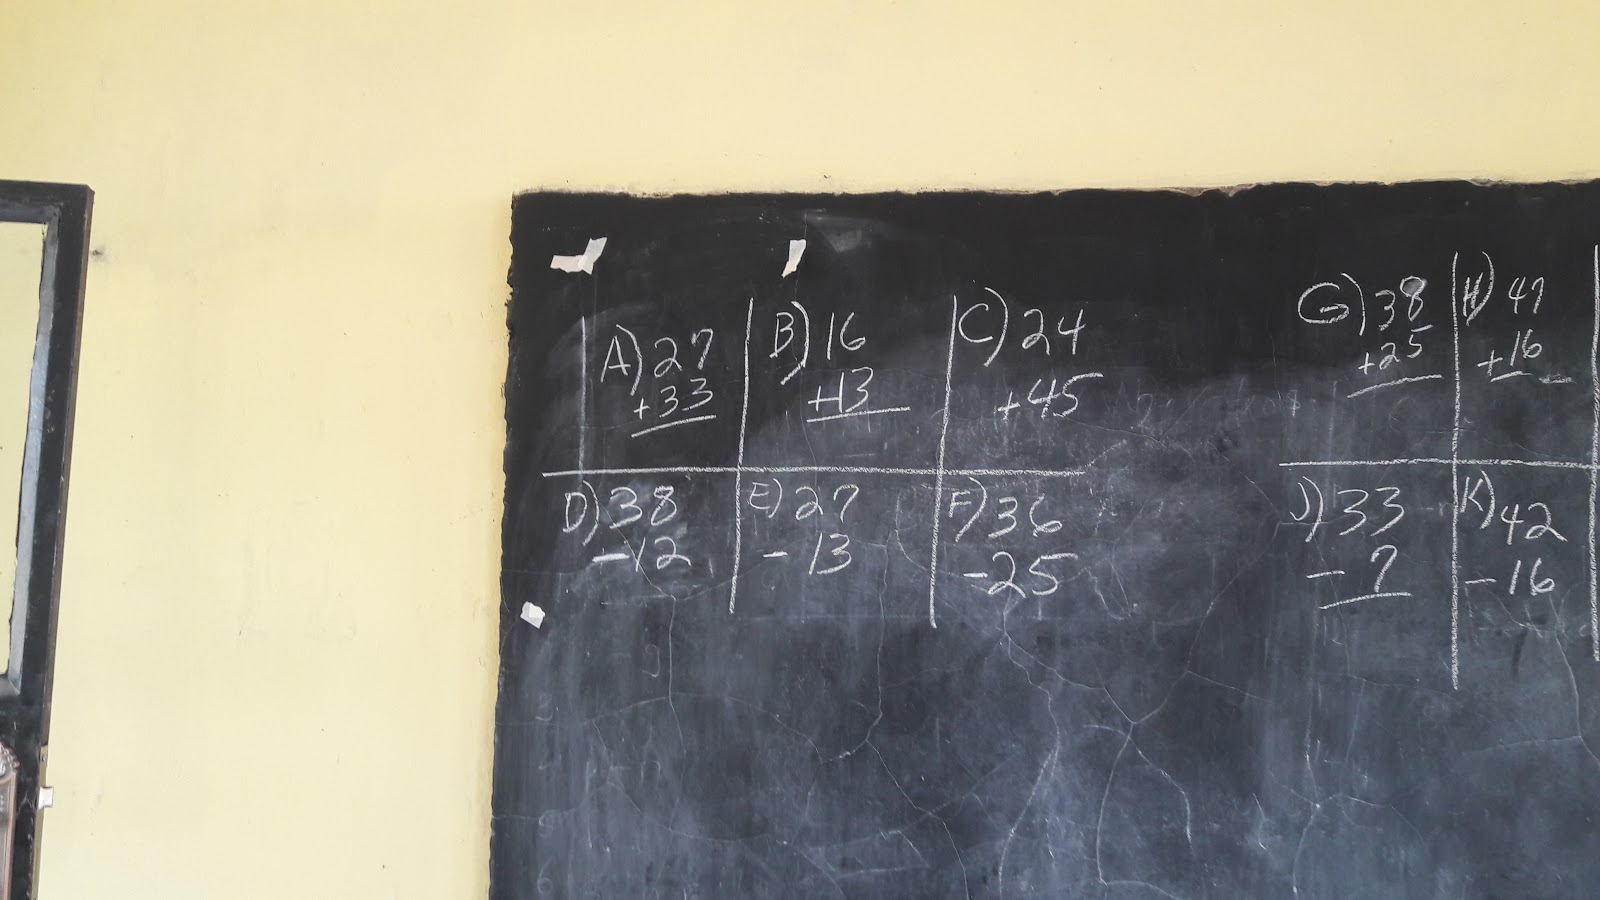 A) 27
+33
B) 16
+13
C) 24
+45
G) 38
+25
H) 47
+16
D) 38
-12
E) 27
- 13
F) 36
-25
J) 33
- 7
K) 42
- 16